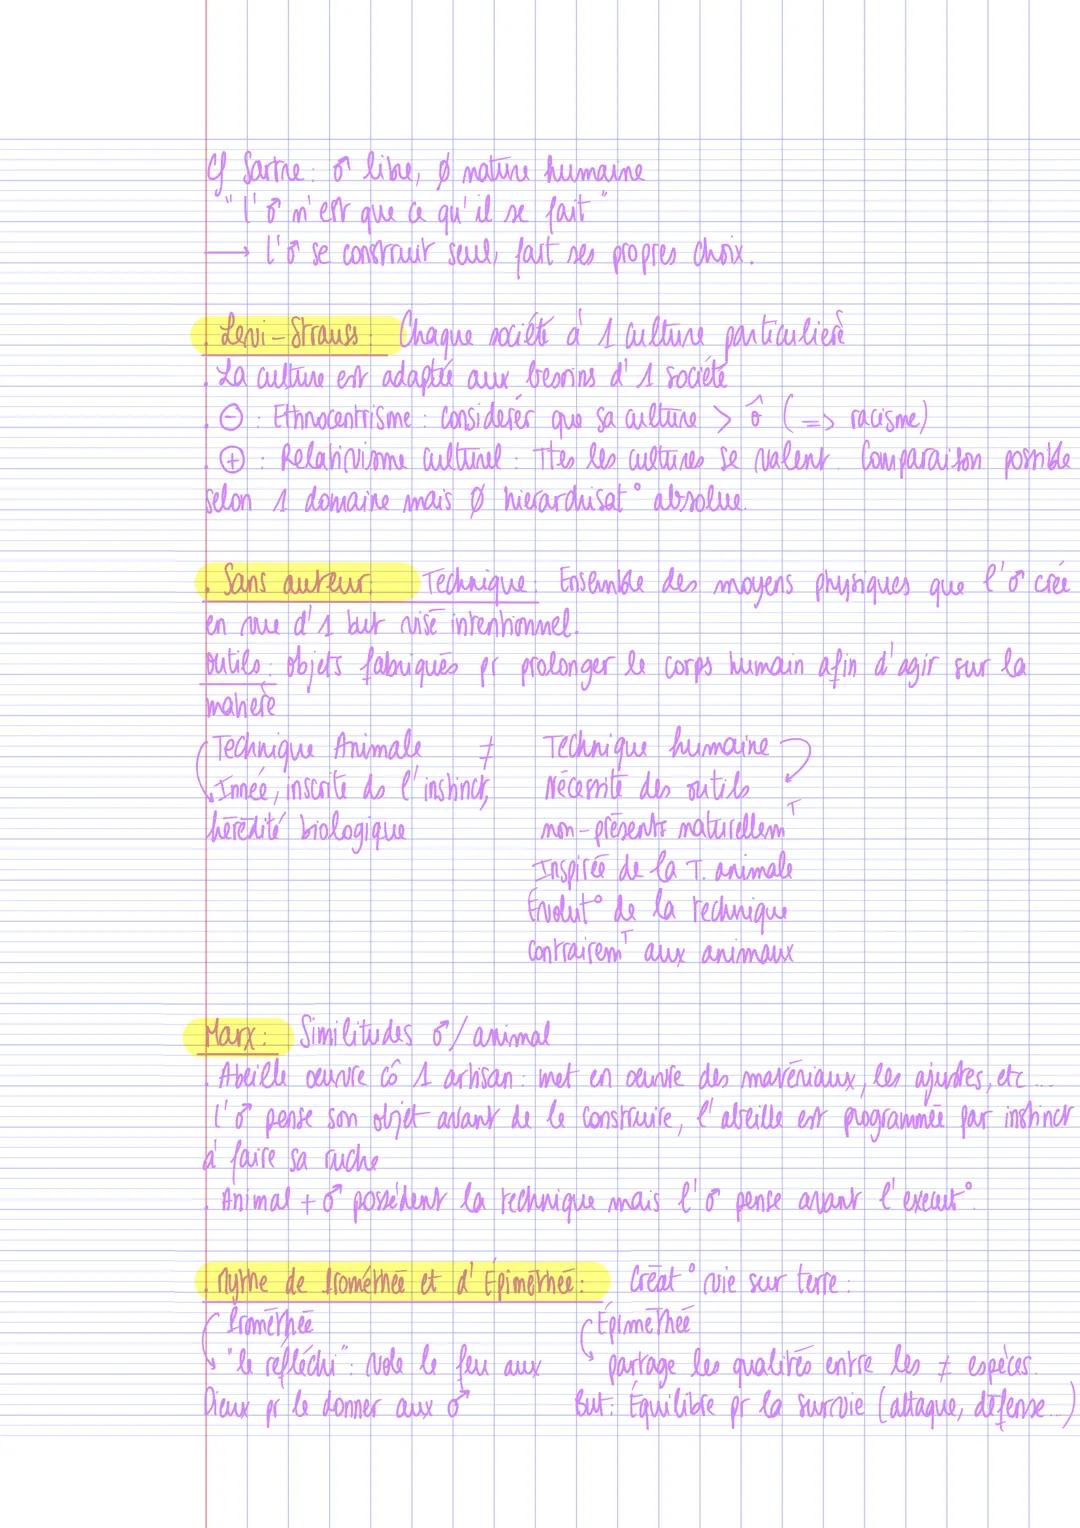 Cf Sartre : ♂ libre, ∅ nature humaine
"l'♂ n'est que ce qu'il se fait"
→ l'♂ se construit seul, fait ses propres choix.
. Levi-Strauss : Chaque société à 1 culture particulière
. La culture est adaptée aux besoins d'1 société
⊖ : Ethnocentrisme : considérer que sa culture > ô (=> racisme)
⊕ : Relativisme culturel : Ttes les cultures se valent. Comparaison possible
selon 1 domaine mais ∅ hiérarchisat° absolue.
. Sans auteur : Technique : Ensemble des moyens physiques que l'♂ crée
en vue d'1 but visé intentionnel.
outils : objets fabriqués pr prolonger le corps humain afin d'agir sur la
matière
Technique Animale ≠ Technique humaine
Innée, inscrite ds l'instinct, Nécessité des outils
hérédité biologique non-présents naturellemT
Inspirée de la T. animale
Évolut° de la technique
contrairemT aux animaux
Marx : Similitudes ♂/animal
. Abeille oeuvre cô 1 artisan : met en oeuvre des matériaux, les ajustes, etc...
l'♂ pense son objet avant de le construire, l'abeille est programmée par instinct
à faire sa ruche
. Animal + ♂ possèdent la technique mais l'♂ pense avant l'execut°.
. Mythe de Prométhée et d'Épiméthée : Créat° vie sur terre :
Prométhée Épiméthée
"le réfléchi" : vole le feu aux partage les qualités entre les ≠ espèces.
Dieux pr le donner aux ♂ But : Équilibre pr la survie (attaque, défense...)